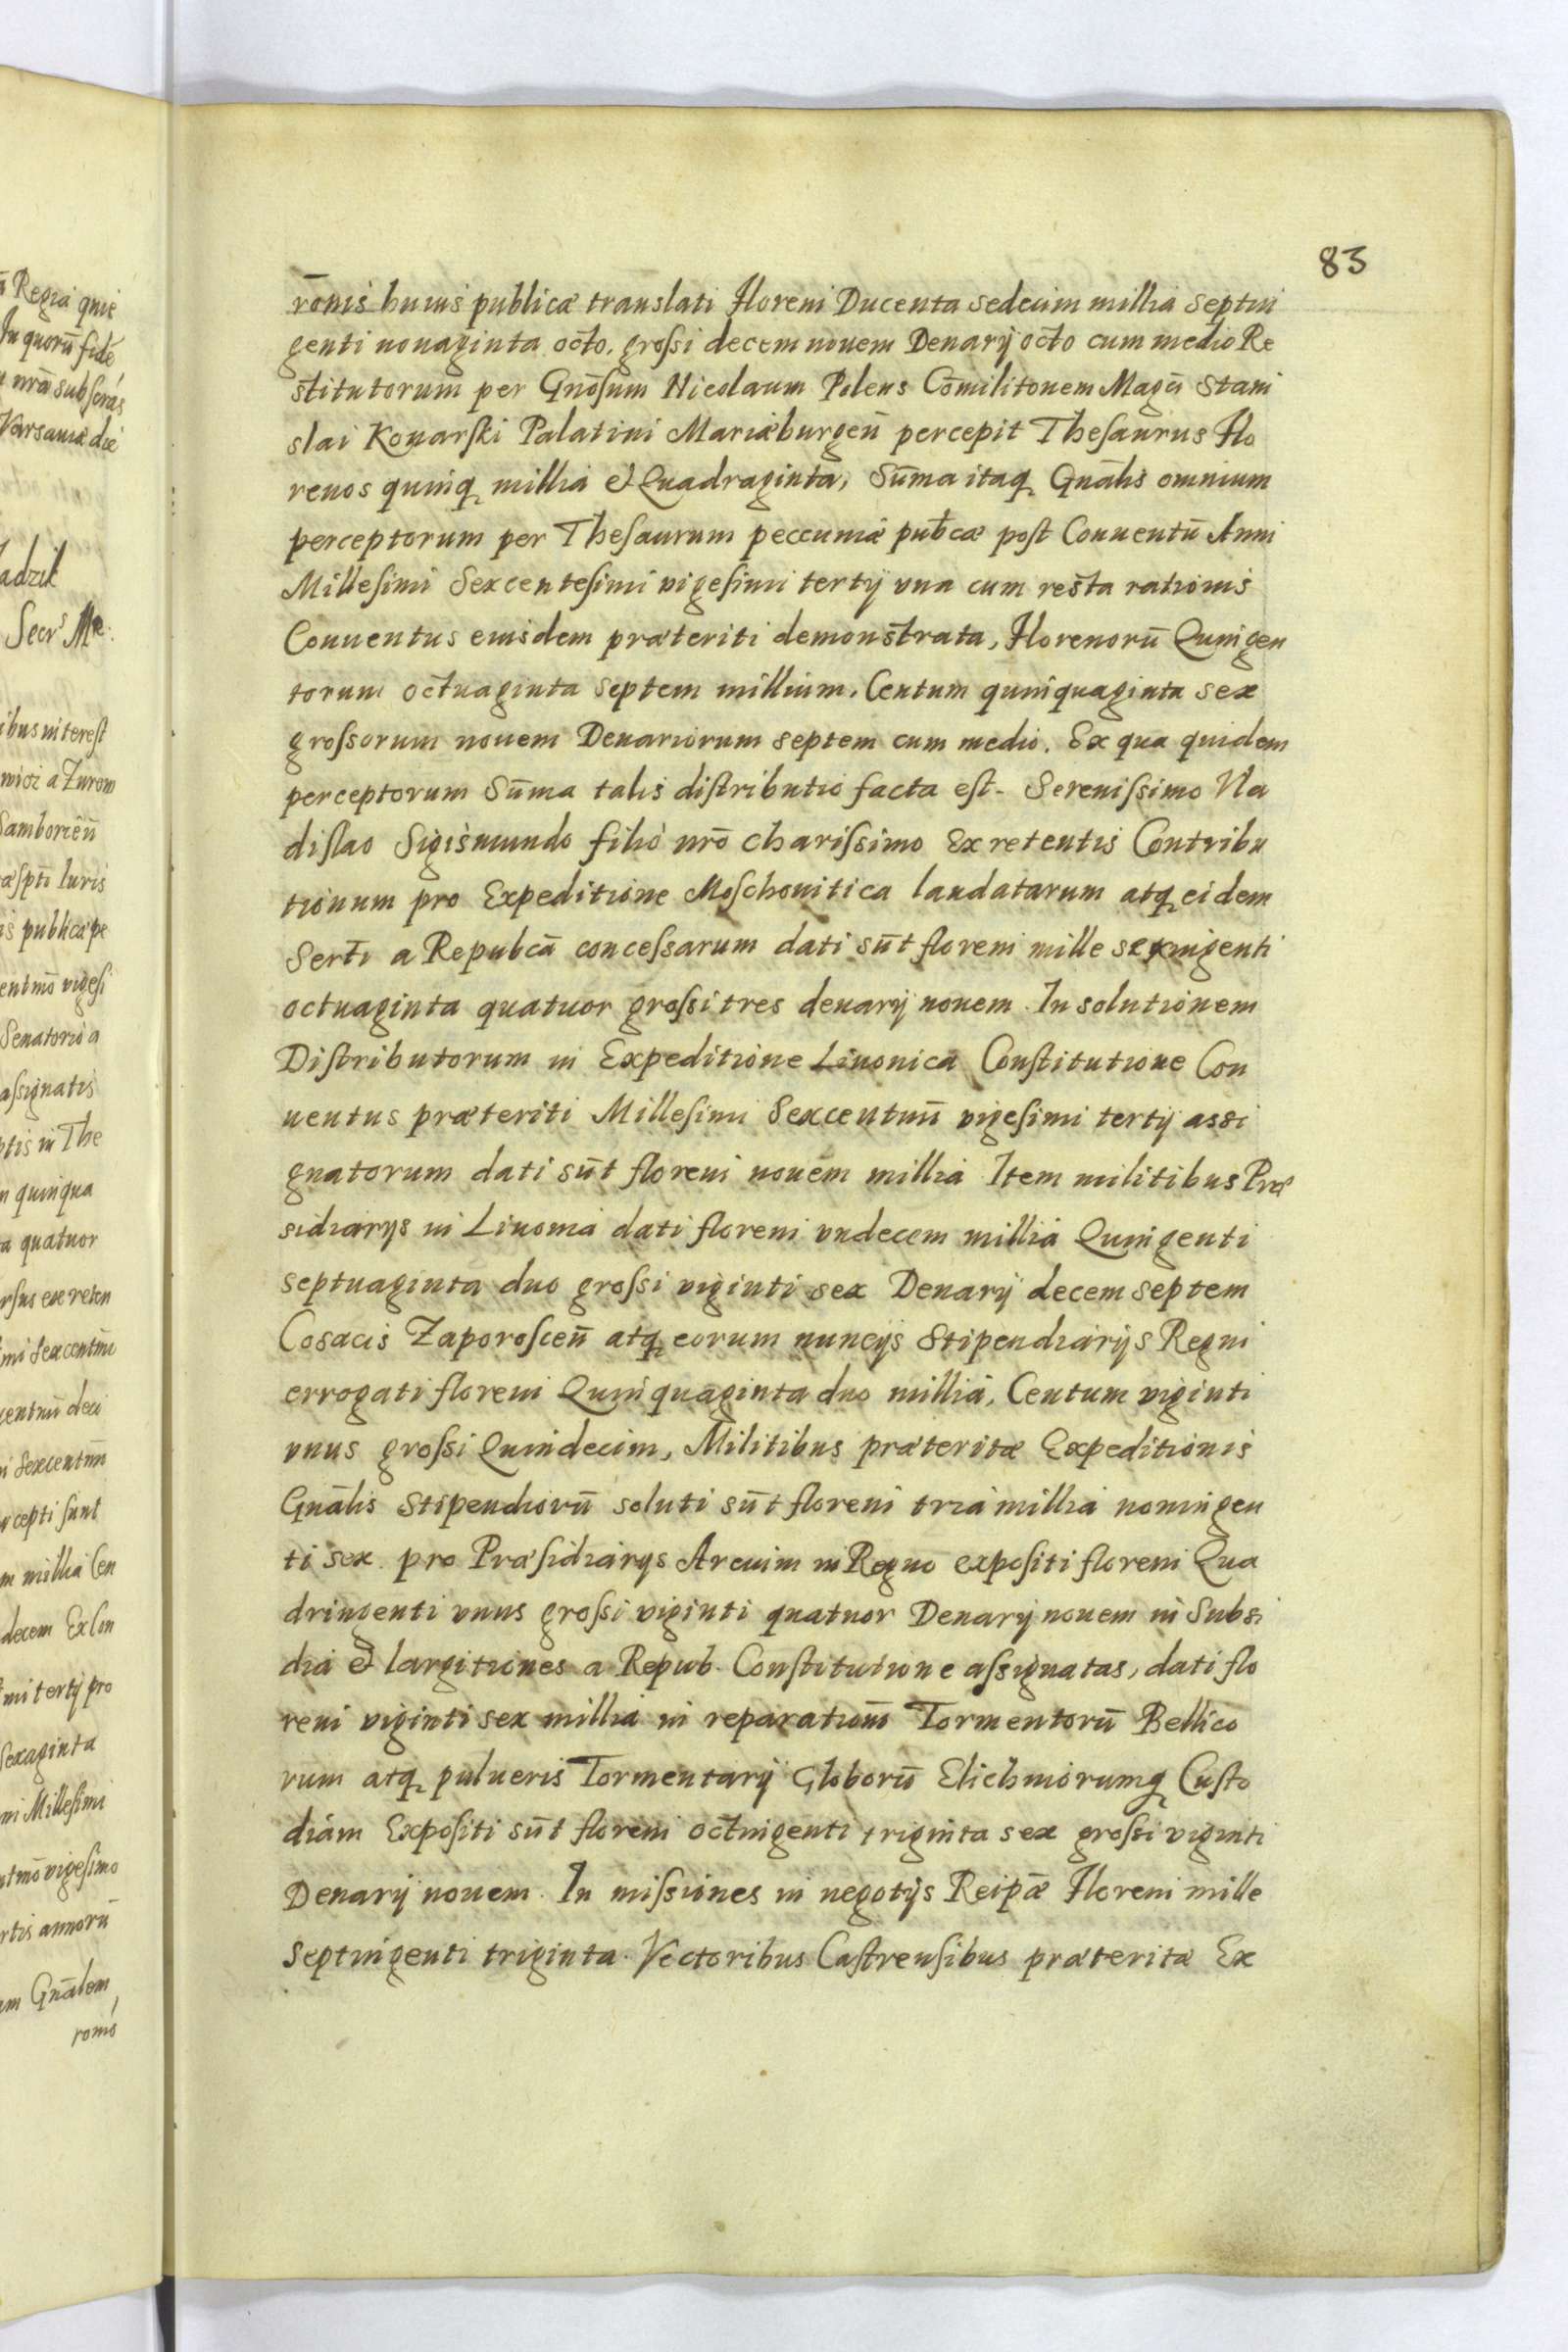 83
rōnis huius publicæ translati Floreni Ducenta sedecim millia septin
genti nonaginta octo, grossi decem nouem Denarij octo cum medio Re
stitutorum per Gnōsum Nicolaum Polens Cōmilitonem Magci Stani
slai Konarski Palatini Mariæburgeñ percepit Thesaurus Flo
renos quinq millia et Quadraginta, Sūma itaq Gnālis omnium
perceptorum per Thesaurum peccuniæ pubcæ post Conuentū Anni
Millesimi Sexcentesimi vigesimi tertij vna cum resta rationis
Conuentus eiusdem præteriti demonstrata, Florenorū Quingen
torum octuaginta septem millium, Centum quinquaginta sex
grossorum nouem Denariorum septem cum medio. Ex qua quidem
perceptorum Sūma talis distributio facta est. Serenissimo Vla
dislao Sigismundo filio nrō charissimo Ex retentis Contribu
tionum pro Expeditione Moschouitica laudatarum atq eidem
Serti a Repubcā concessarum dati sūt floreni mille sexingenti
octuaginta quatuor grossi tres denarij nouem. In solutionem
Distributorum in Expeditione Liuonica Constitutione Con
uentus præteriti Millesimi Sexcentmī vigesimi tertij assi
gnatorum dati sūt floreni nouem millia Item militibus Præ
sidiarys in Liuonia dati floreni vndecem millia Quingenti
septuaginta duo grossi viginti sex Denarij decem septem
Cosacis Zaporosceñ atq eorum nuncijs Stipendiarijs Regni
errogati floreni Quinquaginta duo millia, Centum viginti
vnus grossi Quindecim, Militibus præteritæ Expeditionis
Gnālis Stipendiorū soluti sūt floreni tria millia noningen
ti sex pro Præsidiarys Arcium in Regno expositi floreni Qua
dringenti vnus grossi viginti quatuor Denarij nouem in Subsi
dia et largitiones a Repub. Constitutione assignatas, dati flo
reni viginti sex millia in reparationē Tormentorū Bellico
rum atq pulueris Tormentarij Globorū Elichniorumq Custo
diam Expositi sūt floreni octingenti triginta sex grossi viginti
Denarij nouem. In missiones in negotijs Reipæ Floreni mille
septingenti triginta. Vectoribus Castrensibus præteritæ Ex